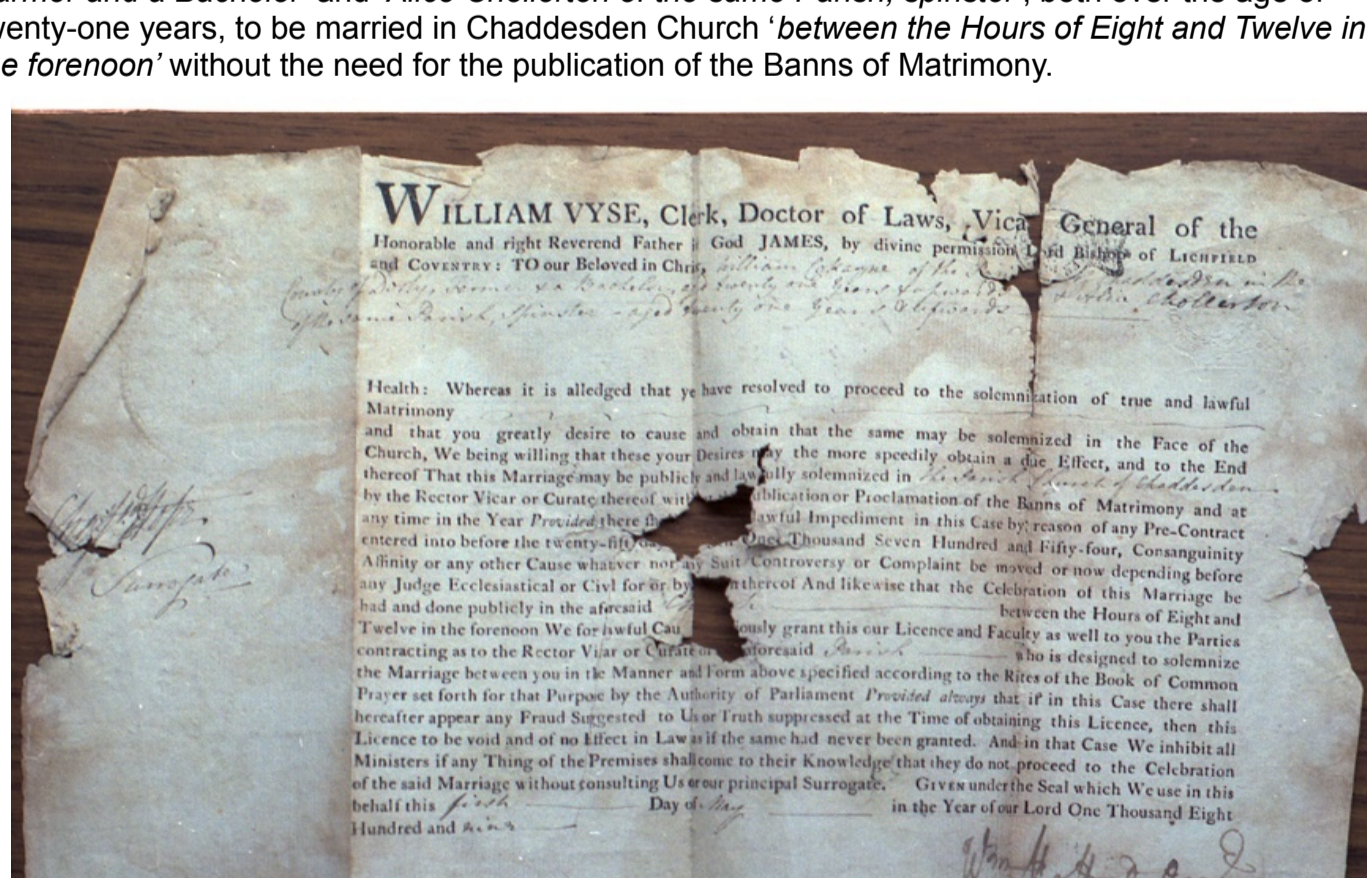 armer and a Bachelor' and 'Alice Chollerton of the same Parish, spinster', both over the age of
wenty-one years, to be married in Chaddesden Church 'between the Hours of Eight and Twelve in
e forenoon' without the need for the publication of the Banns of Matrimony.
WILLIAM VYSE, Clerk, Doctor of Laws, Vica General of the
Honorable and right Reverend Father i God JAMES, by divine permission Lord Bishop of LICHFIELD
and COVENTRY: TO our Beloved in Chris, William Cokayne of the Chaddesden in the
County of Derby, Farmer & a Bachelor, aged twenty one years & upwards Chollerton
of the same Parish, Spinster aged twenty one years & upwards
Health: Whereas it is alledged that ye have resolved to proceed to the solemnization of true and lawful
Matrimony
and that you greatly desire to cause and obtain that the same may be solemnized in the Face of the
Church, We being willing that these your Desires may the more speedily obtain a due Effect, and to the End
thereof That this Marriage may be publicly and lawfully solemnized in the Parish Church of Chaddesden
by the Rector Vicar or Curate thereof with ublication or Proclamation of the Banns of Matrimony and at
any time in the Year Provided there awful Impediment in this Case by reason of any Pre-Contract
entered into before the twenty-fift One Thousand Seven Hundred and Fifty-four, Consanguinity
Affinity or any other Cause whatever nor any Suit Controversy or Complaint be moved or now depending before
any Judge Ecclesiastical or Civl for or by n thereof And likewise that the Celebration of this Marriage be
had and done publicly in the aforesaid between the Hours of Eight and
Twelve in the forenoon We for lawful Cau ously grant this our Licence and Faculty as well to you the Parties
contracting as to the Rector Vicar or Curate of aforesaid Parish who is designed to solemnize
the Marriage between you in the Manner and Form above specified according to the Rites of the Book of Common
Prayer set forth for that Purpose by the Authority of Parliament Provided always that if in this Case there shall
hereafter appear any Fraud Suggested to Us or Truth suppressed at the Time of obtaining this Licence, then this
Licence to be void and of no Effect in Law as if the same had never been granted. And in that Case We inhibit all
Ministers if any Thing of the Premises shall come to their Knowledge that they do not proceed to the Celebration
of the said Marriage without consulting Us or our principal Surrogate. GIVEN under the Seal which We use in this
behalf this first Day of May in the Year of our Lord One Thousand Eight
Hundred and nine
Surrogate